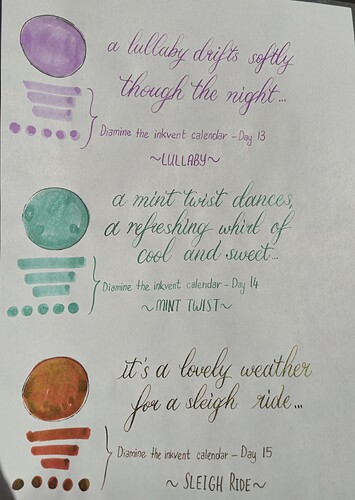 a lullaby drifts softly
though the night...
Diamine the inkvent calendar - Day 13
~LULLABY~
a mint twist dances,
a refreshing whirl of
cool and sweet...
Diamine the inkvent calendar - Day 14
~MINT TWIST~
it's a lovely weather
for a sleigh ride...
Diamine the inkvent calendar - Day 15
~ SLEIGH RIDE ~